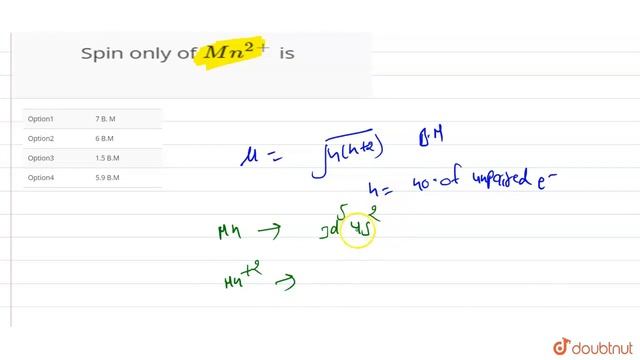 Spin only of Mn²⁺ is
Option1 7 B. M
Option2 6 B.M
Option3 1.5 B.M
Option4 5.9 B.M
μ = √n(n+2) B.M
n = no. of unpaired e⁻
Mn → 3d⁵ 4s²
Mn⁺² →
doubtnut